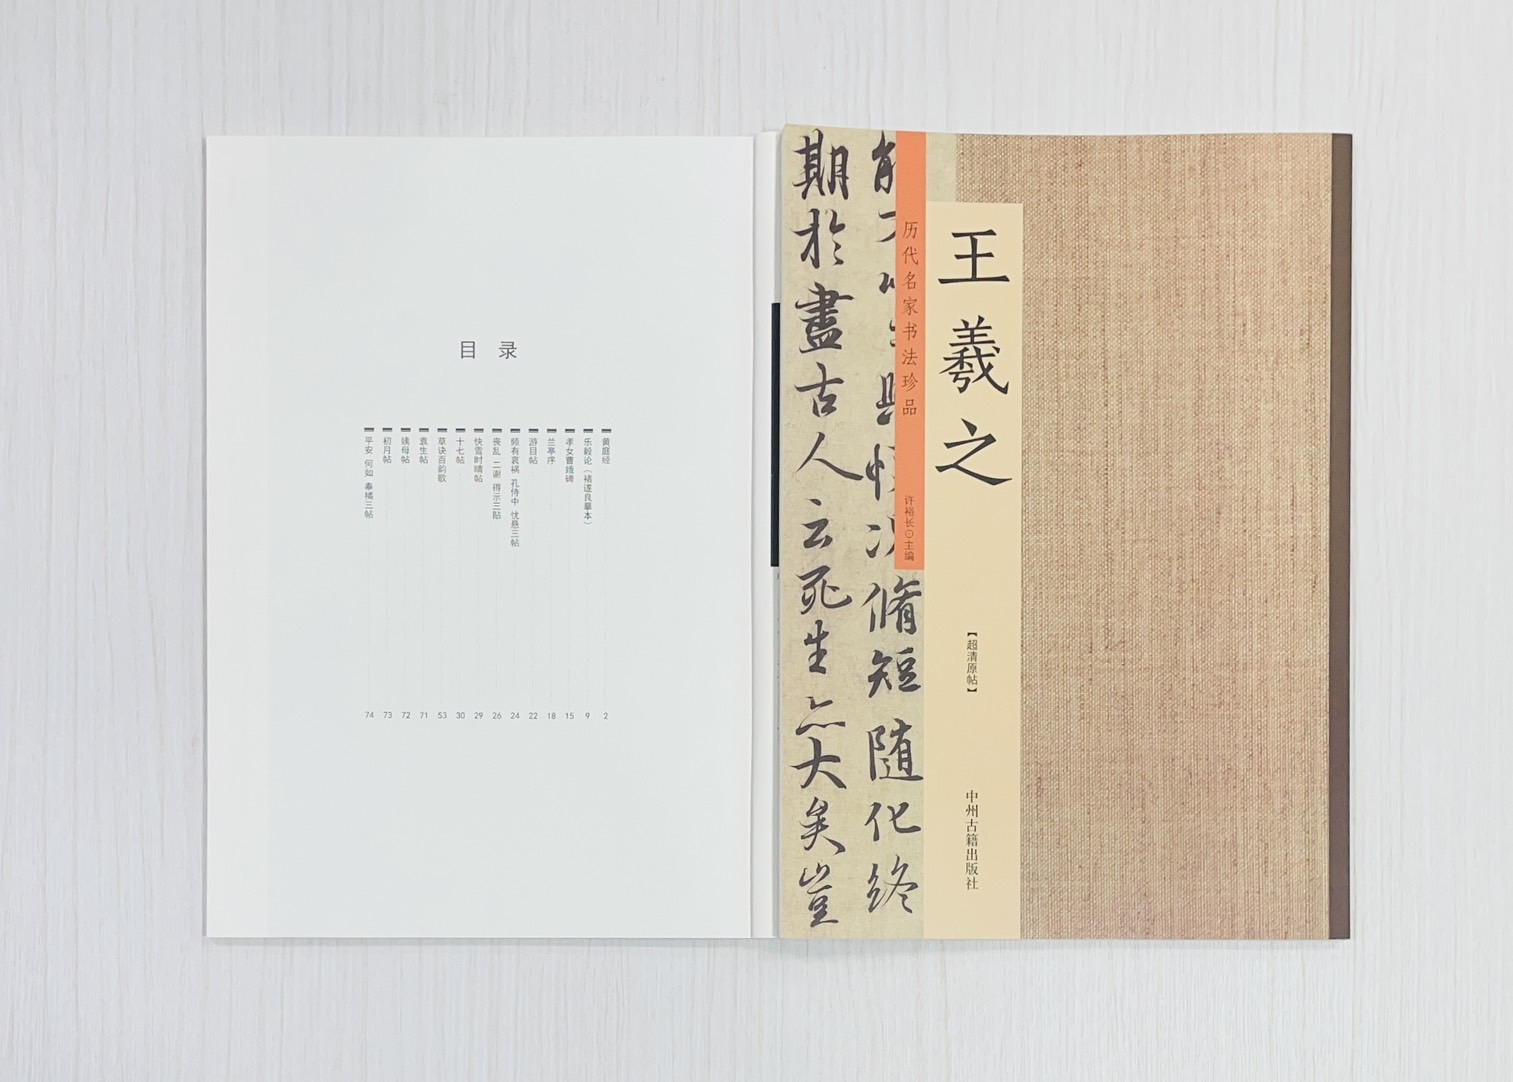 目 录
黄庭经 2
乐毅论（褚遂良摹本） 9
孝女曹娥碑 15
兰亭序 18
游目帖 22
频有哀祸 孔侍中 忧悬三帖 24
丧乱 二谢 得示三贴 26
快雪时晴帖 29
十七帖 30
草诀百韵歌 53
袁生帖 71
姨母帖 72
初月帖 73
平安 何如 奉橘三帖 74
王羲之
【超清原帖】
中州古籍出版社
历代名家书法珍品
许裕长⊙主编
脩短随化终
期於盡古人云死生亦大矣豈